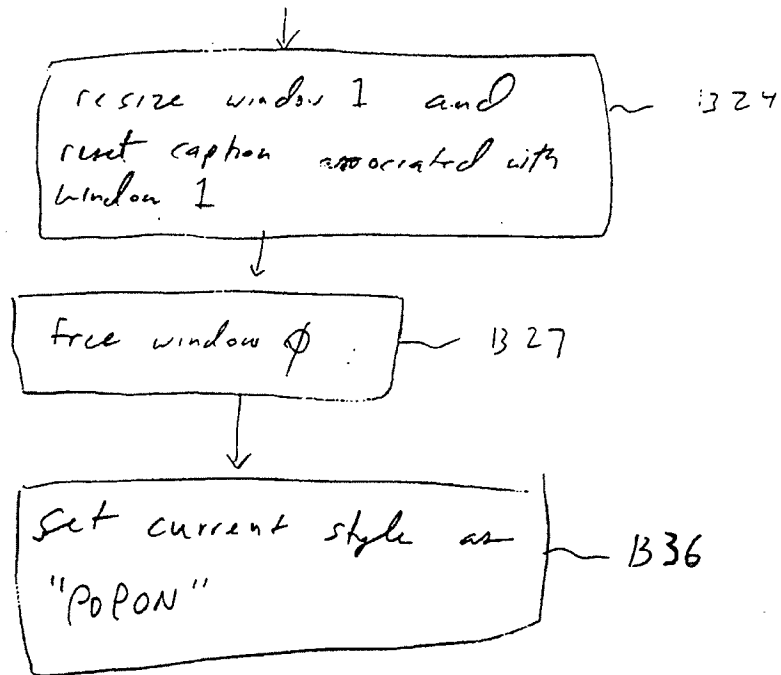 resize window 1 and
reset caption associated with
window 1
B24
free window φ
B27
Set current style as
"POPON"
B36